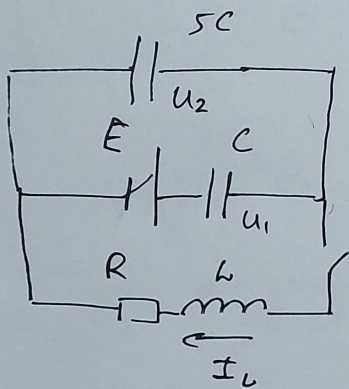 5C
U₂
E C
U₁
R L
I_L